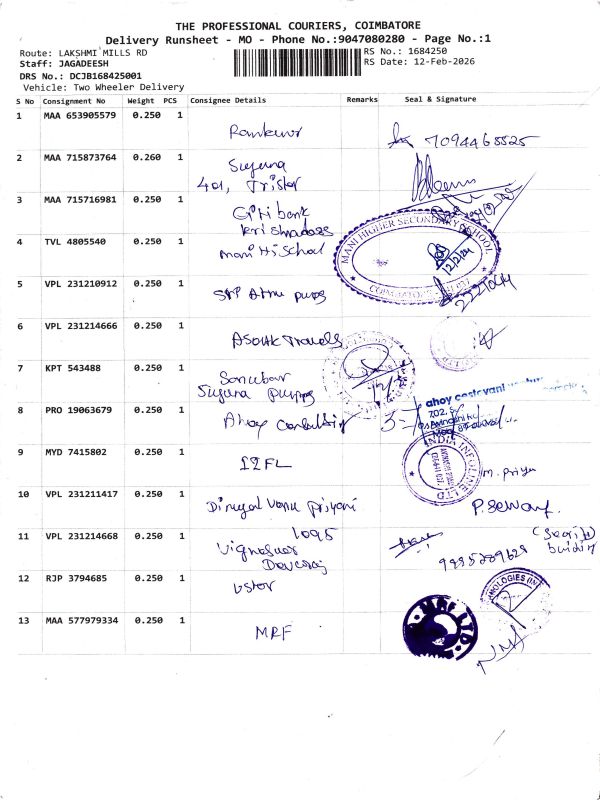 THE PROFESSIONAL COURIERS, COIMBATORE
Delivery Runsheet - MO - Phone No.:9047080280 - Page No.:1
Route: LAKSHMI MILLS RD
RS No.: 1684250
Staff: JAGADEESH
RS Date: 12-Feb-2026
DRS No.: DCJB168425001
Vehicle: Two Wheeler Delivery
S No Consignment No Weight PCS Consignee Details Remarks Seal & Signature
1 MAA 653905579 0.250 1
Ramkumar 7094465525
2 MAA 715873764 0.260 1
Sujuna
401, Tristar
3 MAA 715716981 0.250 1
Citi bank
4 TVL 4805540 0.250 1
Mani Hi School
MANI HIGHER SECONDARY SCHOOL
12/2/24
5 VPL 231210912 0.250 1
6 VPL 231214666 0.250 1
Asoak Travels
7 KPT 543488 0.250 1
Sancubar
Sujuna
8 PRO 19063679 0.250 1
Ahoy Consulting
ahoy
702,
9 MYD 7415802 0.250 1
IIFL
INDIA INFOLINE LTD
M. Priya
10 VPL 231211417 0.250 1
Priyani
11 VPL 231214668 0.250 1
1095
Vignesuar
9995209629
12 RJP 3794685 0.250 1
ustor
13 MAA 577979334 0.250 1
MRF
MRF LTD